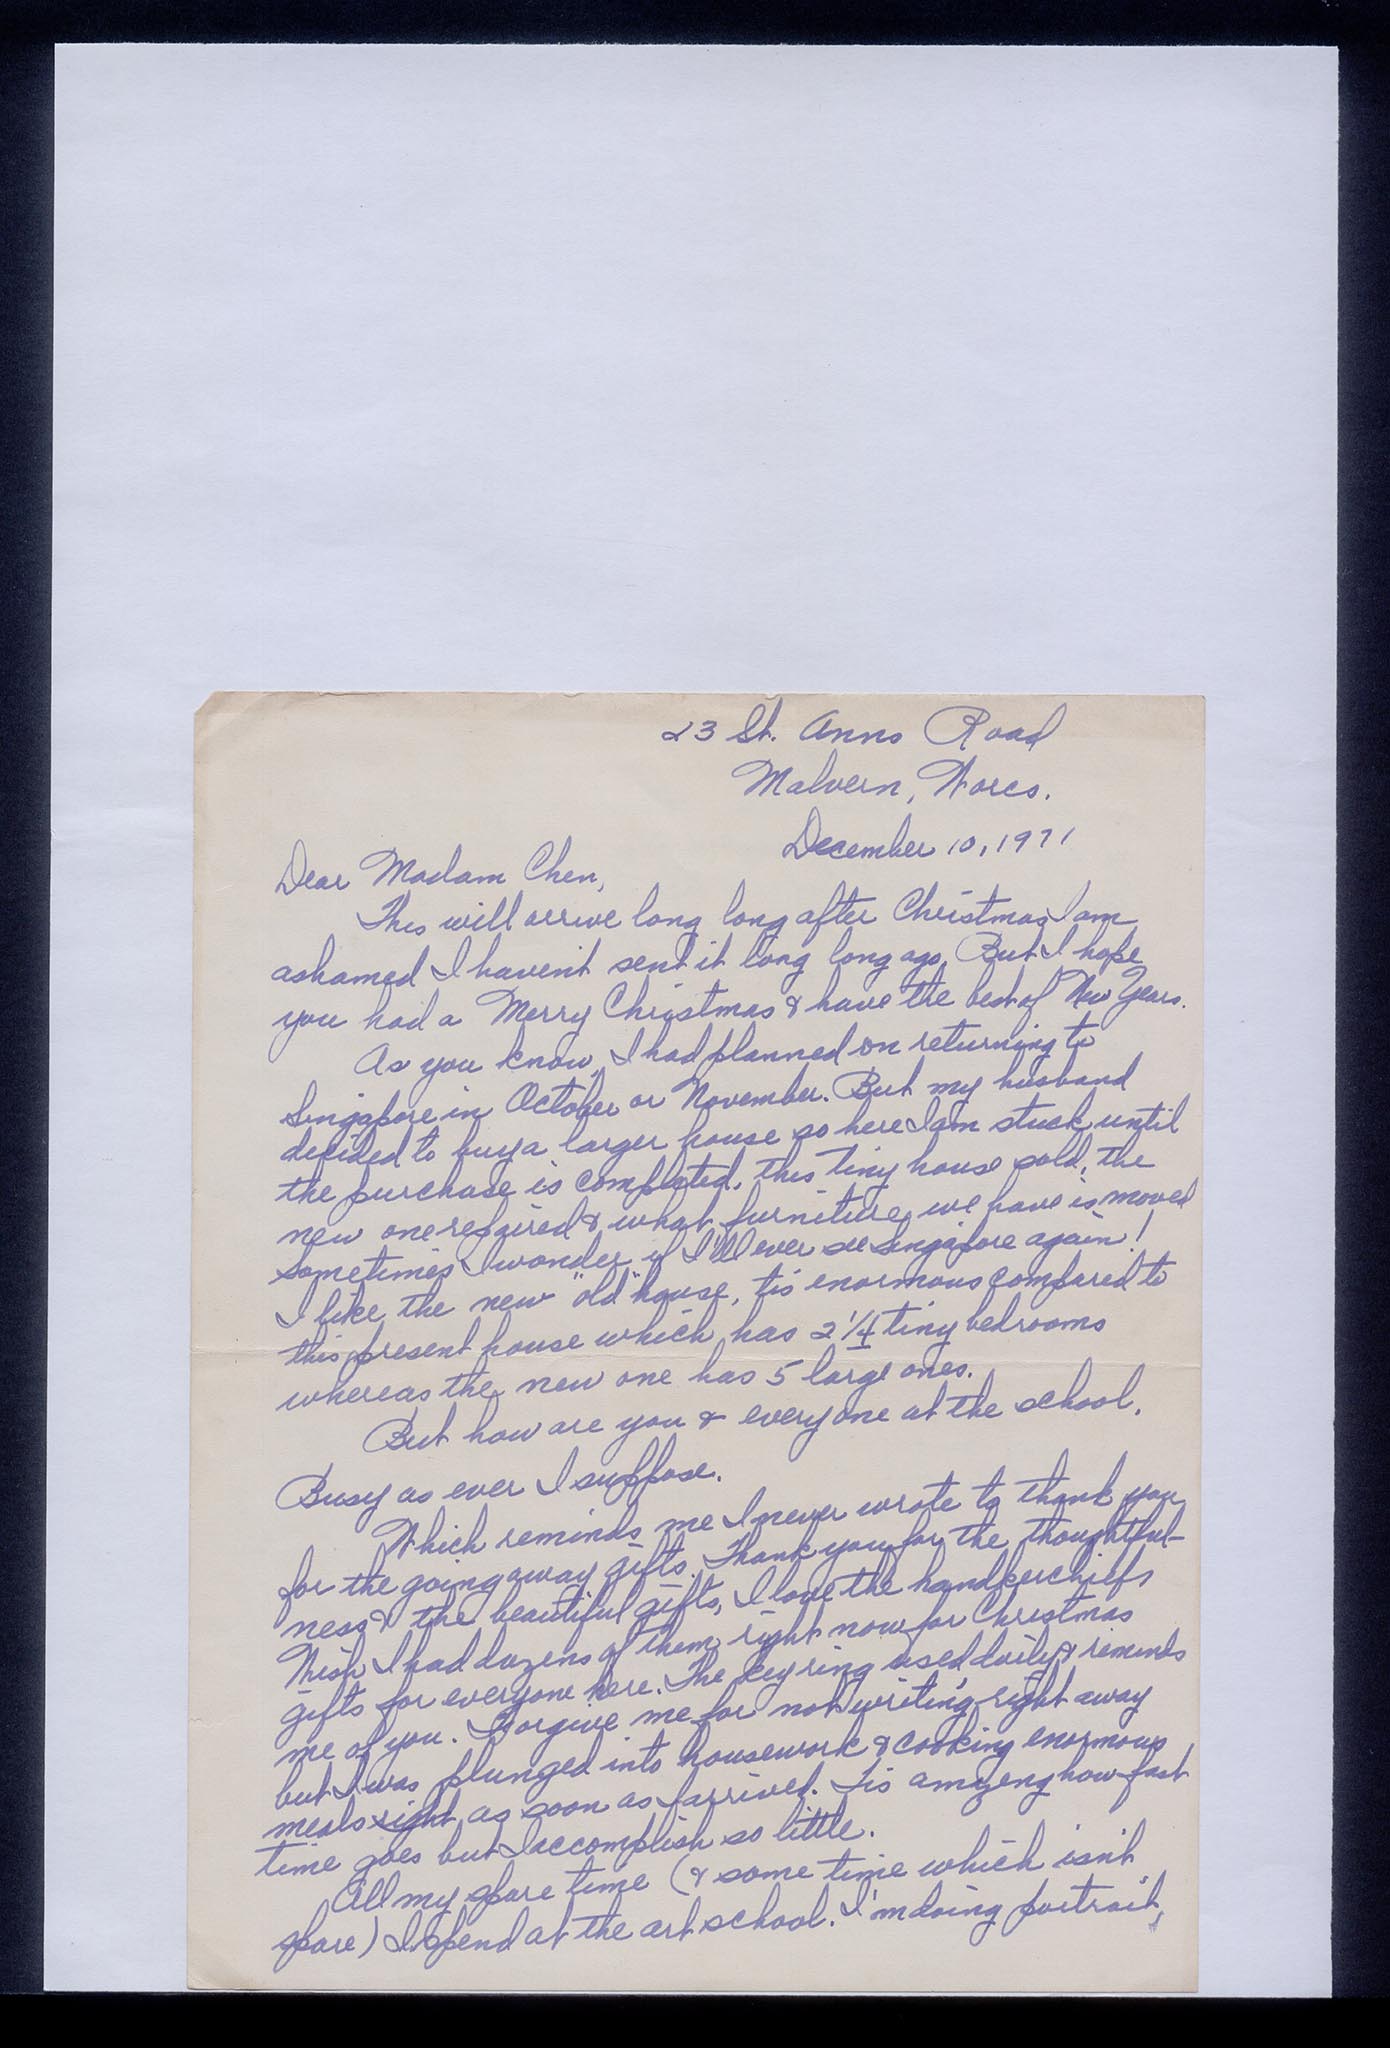 23 St. Anns Road
Malvern, Worcs.
December 10, 1971
Dear Madam Chen,
This will arrive long long after Christmas, I am
ashamed I haven't sent it long long ago. But I hope
you had a Merry Christmas & have the best of New Years.
As you know, I had planned on returning to
Singapore in October or November. But my husband
decided to buy a larger house so here I am stuck until
the purchase is completed, this tiny house sold, the
new one repaired & what furniture we have is moved
Sometimes I wonder if I'll ever see Singapore again!
I like the new "old" house, tis enormous compared to
this present house which has 2 1/4 tiny bedrooms
whereas the new one has 5 large ones.
But how are you & everyone at the school.
Busy as ever I suppose.
Which reminds me I never wrote to thank you
for the going away gifts. Thank you for the thoughtful-
ness & the beautiful gifts, I love the handkerchiefs
Wish I had dozens of them right now for Christmas
gifts for everyone here. The key ring used daily & reminds
me of you. Forgive me for not writing right away
but I was plunged into housework & cooking enormous
meals right as soon as I arrived. Tis amazeng how fast
time goes but I accomplish so little.
All my spare time (& some time which isn't
spare) I spend at the art school. I'm doing portrait,